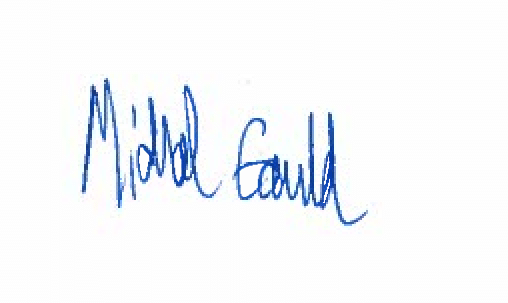 Michael Gould